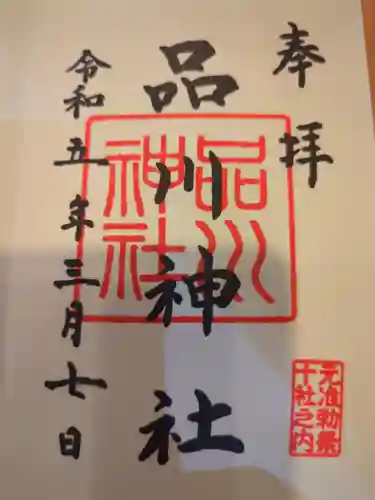 奉拝
品川神社
令和五年三月七日
品川
神社
元准勅祭
十社之内